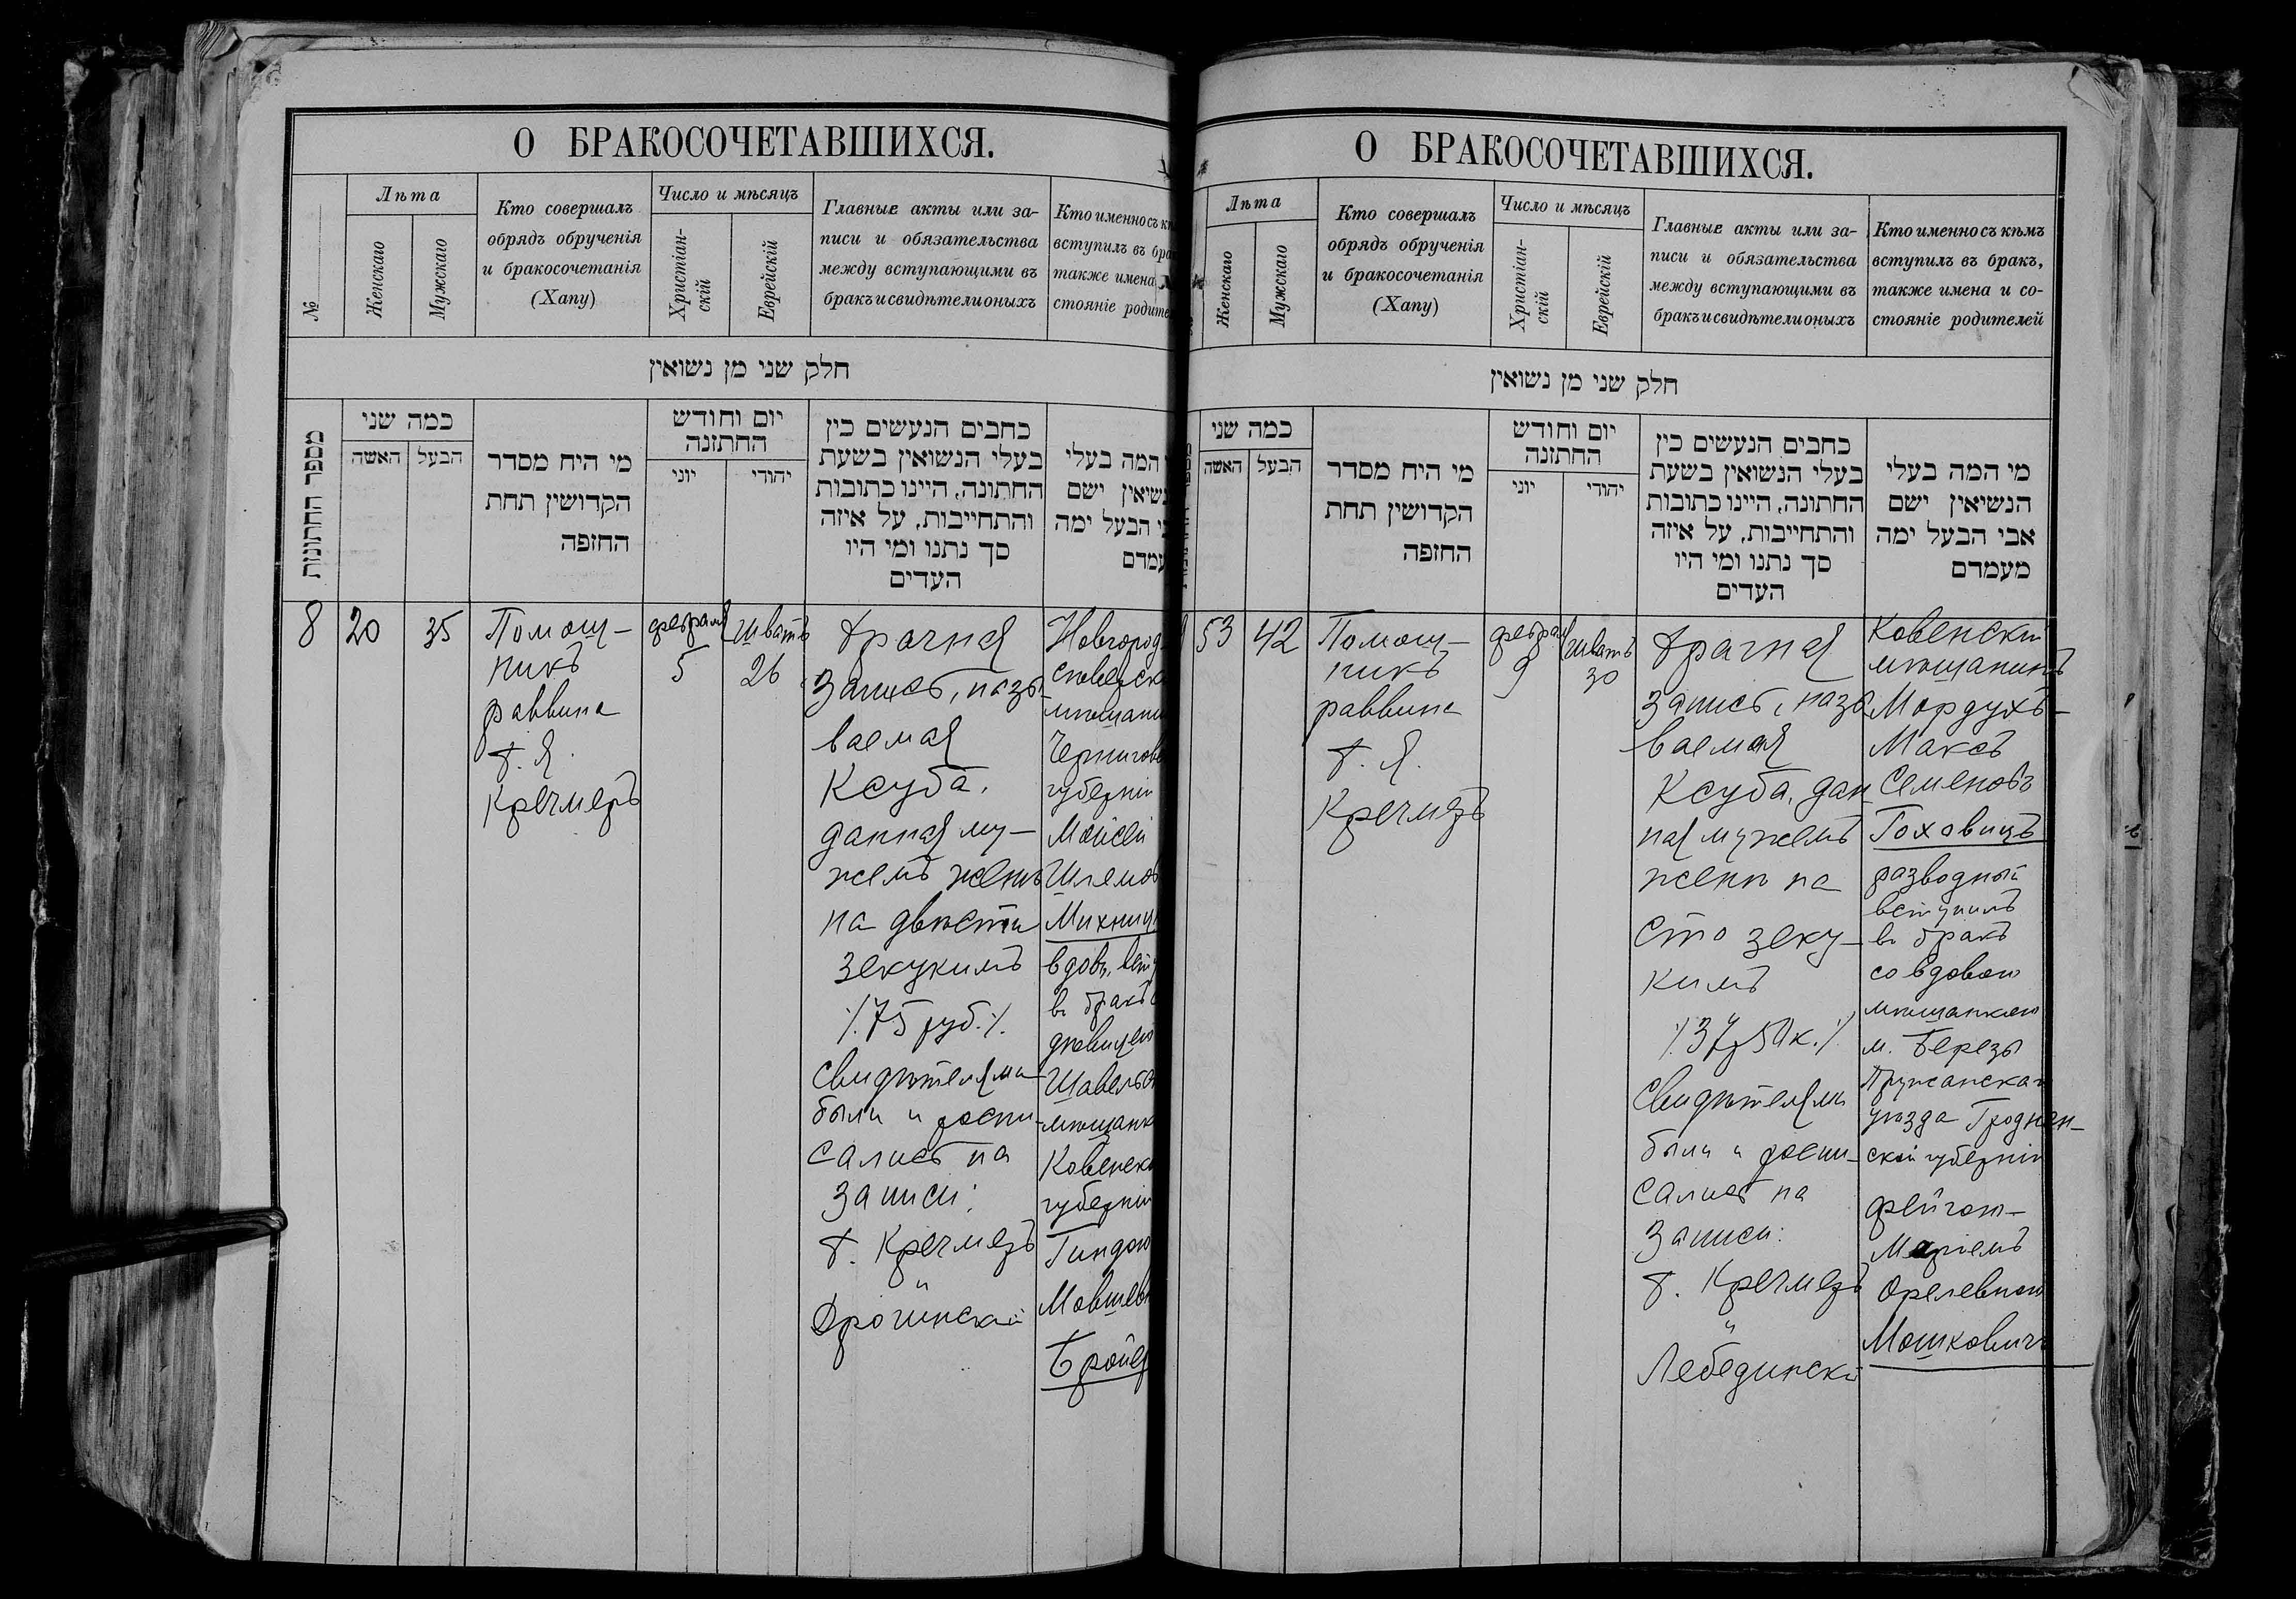 О БРАКОСОЧЕТАВШИХСЯ.
№
Лѣта
Женскаго
Мужскаго
Кто совершалъ
обрядъ обрученія
и бракосочетанія
(Хапу)
Число и мѣсяцъ
Христіан-
скій
Еврейскій
Главные акты или за-
писи и обязательства
между вступающими въ
бракъ и свидѣтели оныхъ
Кто именно съ
вступилъ въ
также имена
стояніе
חלק שני מן נשואין
מספר החתונות
כמה שני
האשה
הבעל
מי היח מסדר
הקדושין תחת
החופה
יום וחודש
החתונה
יוני
יהודי
כחבים הנעשים כין
בעלי הנשואין בשעת
החתונה, היינו כתובות
והתחייבות, על איזה
סך נתנו ומי היו
העדים
המה בעלי
ישם
הבעל ימה
8
20
35
Помощ-
никъ
раввина
Б. Я.
Кречмеръ
февраля
5
Шватъ
26
Брачная
запись, назы-
ваемая
Ксуба,
данная му-
жемъ женѣ
на двѣсти
зекукимъ
/.75 руб./.
Свидѣтелями
были и распи-
сались на
записи:
Б. Кречмеръ
и
Дрогинскій
Новгород-
сѣверск
мѣщани
Черниговс
губерніи
Мойсей
Шлемов
Михниц
вдов, вст
въ бракъ
дѣвицею
Шавельс
мѣщанк
Ковенск
губерніи
Гиндою
Мовшев
Бройд
О БРАКОСОЧЕТАВШИХСЯ.
Лѣта
Женскаго
Мужскаго
Кто совершалъ
обрядъ обрученія
и бракосочетанія
(Хапу)
Число и мѣсяцъ
Христіан-
скій
Еврейскій
Главные акты или за-
писи и обязательства
между вступающими въ
бракъ и свидѣтели оныхъ
Кто именно съ кѣмъ
вступилъ въ бракъ,
также имена и со-
стояніе родителей
חלק שני מן נשואין
כמה שני
האשה
הבעל
מי היח מסדר
הקדושין תחת
החופה
יום וחודש
החתונה
יוני
יהודי
כחבים הנעשים כין
בעלי הנשואין בשעת
החתונה, היינו כתובות
והתחייבות, על איזה
סך נתנו ומי היו
העדים
מי המה בעלי
הנשיאין ישם
אבי הבעל ימה
מעמדם
53
42
Помощ-
никъ
раввина
Б. Я.
Кречмеръ
февраля
9
Шватъ
30
Брачная
запись, назы-
ваемая
Ксуба, дан-
ная мужемъ
женѣ на
сто зеку-
кимъ
/.37 р 50 к./.
Свидѣтелями
были и распи-
сались на
записи:
Б. Кречмеръ
и
Лебединскій
Ковенскій
мѣщанинъ
Мордухъ-
Максъ
Семеновъ
Гоховицъ
разводный
вступилъ
въ бракъ
со вдовою
мѣщанкою
м. Березы
Пружанскаго
уѣзда Гроднен-
ской губерніи
Фейгою-
Маріемъ
Орелевною
Мошковичъ